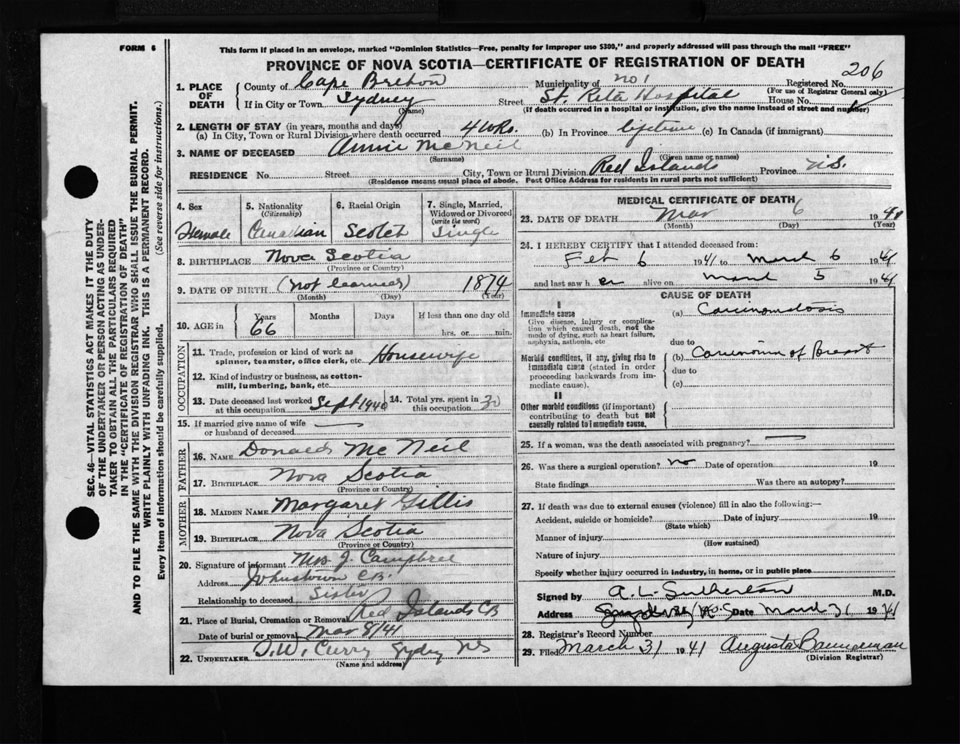 FORM 6
This form if placed in an envelope, marked "Dominion Statistics—Free, penalty for improper use $300," and properly addressed will pass through the mail "FREE"
PROVINCE OF NOVA SCOTIA—CERTIFICATE OF REGISTRATION OF DEATH
206
1. PLACE OF DEATH
County of Cape Breton Municipality of No 1 Registered No.
(For use of Registrar General only)
If in City or Town Sydney Street St. Rita Hospital House No.
(Name) (If death occurred in a hospital or institution, give the name instead of street and number)
2. LENGTH OF STAY (in years, months and days)
(a) In City, Town or Rural Division where death occurred 4 wks. (b) In Province lifetime (c) In Canada (if immigrant)
3. NAME OF DECEASED Annie McNeil
(Surname) (Given name or names)
RESIDENCE No. Street City, Town or Rural Division Red Islands Province N.S.
(Residence means usual place of abode. Post Office Address for residents in rural parts not sufficient)
4. Sex Female
5. Nationality (Citizenship) Canadian
6. Racial Origin Scotch
7. Single, Married, Widowed or Divorced (write the word) Single
8. BIRTHPLACE Nova Scotia
(Province or Country)
9. DATE OF BIRTH (not learned) 1874
(Month) (Day) (Year)
10. AGE in Years Months Days If less than one day old
66 hrs. or min.
OCCUPATION
11. Trade, profession or kind of work as spinner, teamster, office clerk, etc. Housewife
12. Kind of industry or business, as cotton-mill, lumbering, bank, etc.
13. Date deceased last worked at this occupation Sept 1940
14. Total yrs. spent in this occupation 30
15. If married give name of wife or husband of deceased —
FATHER
16. NAME Donald McNeil
17. BIRTHPLACE Nova Scotia
(Province or Country)
MOTHER
18. MAIDEN NAME Margaret Gillis
19. BIRTHPLACE Nova Scotia
(Province or Country)
20. Signature of informant Mrs J. Campbell
Address Johnstown C.B.
Relationship to deceased Sister
21. Place of Burial, Cremation or Removal Red Islands CB
Date of burial or removal Mar 8/41
22. UNDERTAKER T.W. Curry Sydney NS
(Name and address)
MEDICAL CERTIFICATE OF DEATH
23. DATE OF DEATH Mar 6 1941
(Month) (Day) (Year)
24. I HEREBY CERTIFY that I attended deceased from:
Feb 6 1941 to March 6 1941
and last saw her alive on March 5 1941
CAUSE OF DEATH
I
Immediate cause
Give disease, injury or complication which caused death, not the mode of dying, such as heart failure, asphyxia, asthenia, etc
(a) Carcinomatosis
due to
Morbid conditions, if any, giving rise to immediate cause (stated in order proceeding backwards from immediate cause).
(b) Carcinoma of Breast
due to
(c)
II
Other morbid conditions (if important) contributing to death but not causally related to immediate cause.
25. If a woman, was the death associated with pregnancy? —
26. Was there a surgical operation? no Date of operation 19
State findings Was there an autopsy?
27. If death was due to external causes (violence) fill in also the following:—
Accident, suicide or homicide? Date of injury 19
(State which)
Manner of injury
(How sustained)
Nature of injury
Specify whether injury occurred in industry, in home, or in public place
Signed by A. L. Sutherland M.D.
Address Date March 31 1941
28. Registrar's Record Number
29. Filed March 31 1941 Augusta
(Division Registrar)
SEC. 46—VITAL STATISTICS ACT MAKES IT THE DUTY
OF THE UNDERTAKER OR PERSON ACTING AS UNDER-
TAKER TO OBTAIN ALL THE PARTICULARS REQUIRED
IN THE "CERTIFICATE OF REGISTRATION OF DEATH"
AND TO FILE THE SAME WITH THE DIVISION REGISTRAR WHO SHALL ISSUE THE BURIAL PERMIT.
WRITE PLAINLY WITH UNFADING INK. THIS IS A PERMANENT RECORD.
Every item of information should be carefully supplied. (See reverse side for instructions.)